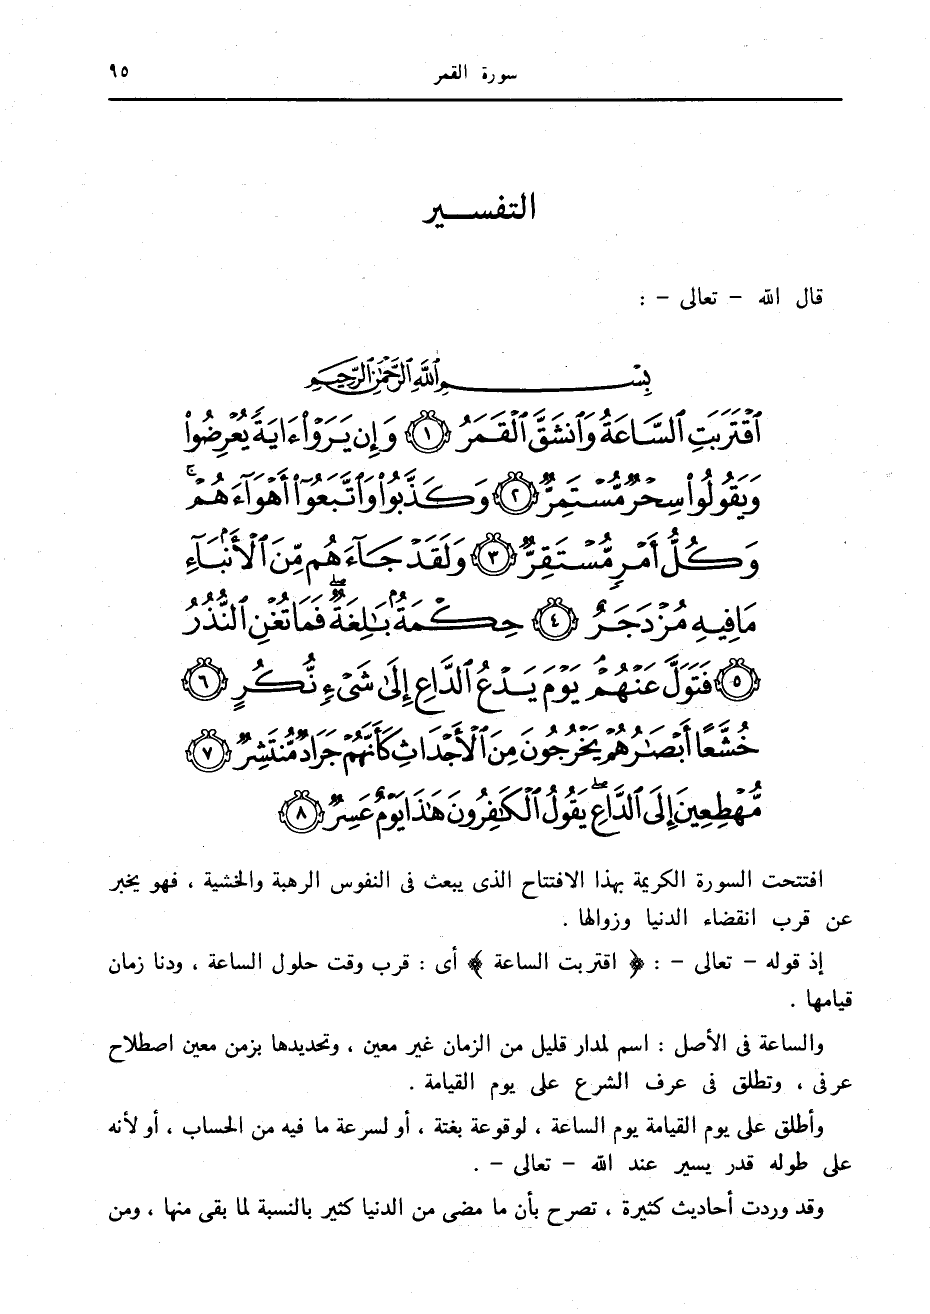 سورة القمر ٩٥
التفسير
قال الله - تعالى - :
بِسْمِ ٱللَّهِ ٱلرَّحْمَٰنِ ٱلرَّحِيمِ
ٱقْتَرَبَتِ ٱلسَّاعَةُ وَٱنشَقَّ ٱلْقَمَرُ ﴿١﴾ وَإِن يَرَوْا۟ ءَايَةً يُعْرِضُوا۟
وَيَقُولُوا۟ سِحْرٌ مُّسْتَمِرٌّ ﴿٢﴾ وَكَذَّبُوا۟ وَٱتَّبَعُوٓا۟ أَهْوَآءَهُمْ ۚ
وَكُلُّ أَمْرٍ مُّسْتَقِرٌّ ﴿٣﴾ وَلَقَدْ جَآءَهُم مِّنَ ٱلْأَنۢبَآءِ
مَا فِيهِ مُزْدَجَرٌ ﴿٤﴾ حِكْمَةٌۢ بَٰلِغَةٌ ۖ فَمَا تُغْنِ ٱلنُّذُرُ
﴿٥﴾ فَتَوَلَّ عَنْهُمْ ۘ يَوْمَ يَدْعُ ٱلدَّاعِ إِلَىٰ شَىْءٍ نُّكُرٍ ﴿٦﴾
خُشَّعًا أَبْصَٰرُهُمْ يَخْرُجُونَ مِنَ ٱلْأَجْدَاثِ كَأَنَّهُمْ جَرَادٌ مُّنتَشِرٌ ﴿٧﴾
مُّهْطِعِينَ إِلَى ٱلدَّاعِ ۖ يَقُولُ ٱلْكَٰفِرُونَ هَٰذَا يَوْمٌ عَسِرٌ ﴿٨﴾
افتتحت السورة الكريمة بهذا الافتتاح الذى يبعث فى النفوس الرهبة والخشية ، فهو يخبر
عن قرب انقضاء الدنيا وزوالها .
إذ قوله - تعالى - : ﴿ اقتربت الساعة ﴾ أى : قرب وقت حلول الساعة ، ودنا زمان
قيامها .
والساعة فى الأصل : اسم لمدار قليل من الزمان غير معين ، وتحديدها بزمن معين اصطلاح
عرفى ، وتطلق فى عرف الشرع على يوم القيامة .
وأطلق على يوم القيامة يوم الساعة ، لوقوعة بغتة ، أو لسرعة ما فيه من الحساب ، أو لأنه
على طوله قدر يسير عند الله - تعالى - .
وقد وردت أحاديث كثيرة ، تصرح بأن ما مضى من الدنيا كثير بالنسبة لما بقى منها ، ومن